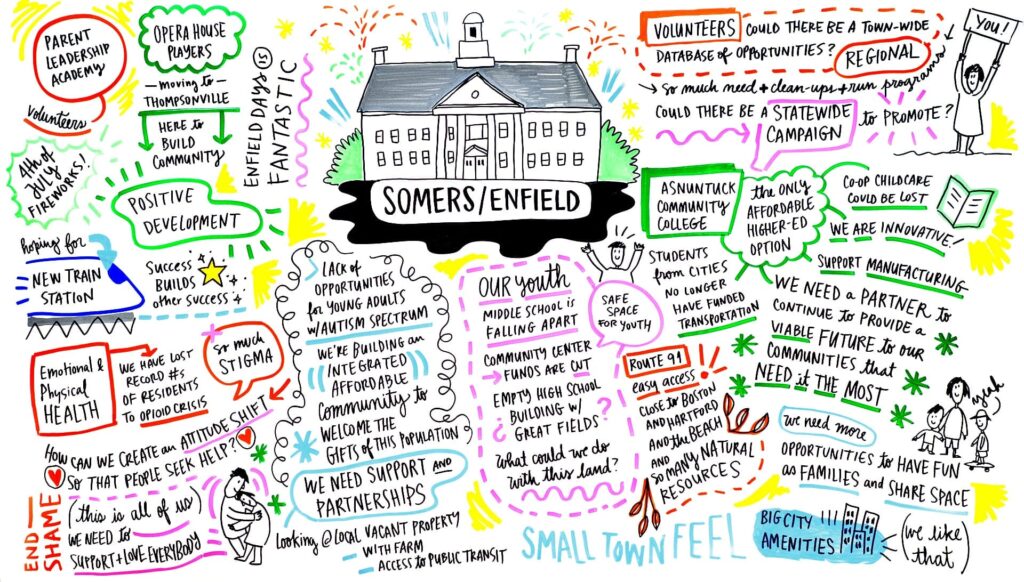 PARENT
LEADERSHIP
ACADEMY
Volunteers
OPERA HOUSE
PLAYERS
— moving to —
THOMPSONVILLE
HERE to
BUILD
COMMUNITY
ENFIELD DAYS IS
FANTASTIC
4TH OF
JULY
FIREWORKS!
POSITIVE
DEVELOPMENT
hoping for
NEW TRAIN
STATION
Success
BUILDS
other success
SOMERS/ENFIELD
VOLUNTEERS COULD THERE BE A TOWN-WIDE
DATABASE OF OPPORTUNITIES?
REGIONAL
→ So much need + clean-ups + run programs
COULD THERE BE A STATEWIDE
CAMPAIGN
to PROMOTE?
YOU!
ASNUNTUCK
COMMUNITY
COLLEGE
the ONLY
AFFORDABLE
HIGHER-ED
OPTION
CO-OP CHILDCARE
COULD BE LOST
WE ARE INNOVATIVE!
SUPPORT MANUFACTURING
STUDENTS
from CITIES
NO LONGER
HAVE FUNDED
TRANSPORTATION
WE NEED A PARTNER to
CONTINUE to PROVIDE a
VIABLE FUTURE to OUR
COMMUNITIES that
NEED it THE MOST
Emotional &
Physical
HEALTH
WE HAVE LOST
RECORD #S
OF RESIDENTS
TO OPIOID CRISIS
So much
STIGMA
HOW CAN WE CREATE an ATTITUDE SHIFT
SO THAT PEOPLE SEEK HELP?
END
SHAME
(this is all of us)
WE NEED to
SUPPORT + LOVE EVERYBODY
LACK of
OPPORTUNITIES
for YOUNG ADULTS
W/AUTISM SPECTRUM
WE'RE BUILDING an
INTEGRATED
AFFORDABLE
COMMUNITY to
WELCOME the
GIFTS of THIS POPULATION
WE NEED SUPPORT AND
PARTNERSHIPS
Looking @ LOCAL VACANT PROPERTY
WITH FARM
ACCESS to PUBLIC TRANSIT
OUR YOUTH
MIDDLE SCHOOL is
FALLING APART
COMMUNITY CENTER
→ FUNDS ARE CUT
EMPTY HIGH SCHOOL
¿ BUILDING W/ ?
GREAT FIELDS
What could we do
with this land?
SAFE
SPACE
FOR YOUTH
ROUTE 91
easy access!
CLOSE to BOSTON
AND HARTFORD
AND the BEACH
AND
SO MANY NATURAL
RESOURCES
SMALL TOWN FEEL
we need more
OPPORTUNITIES to HAVE FUN
as FAMILIES and SHARE SPACE
yeah
BIG CITY
AMENITIES
(we like
that)